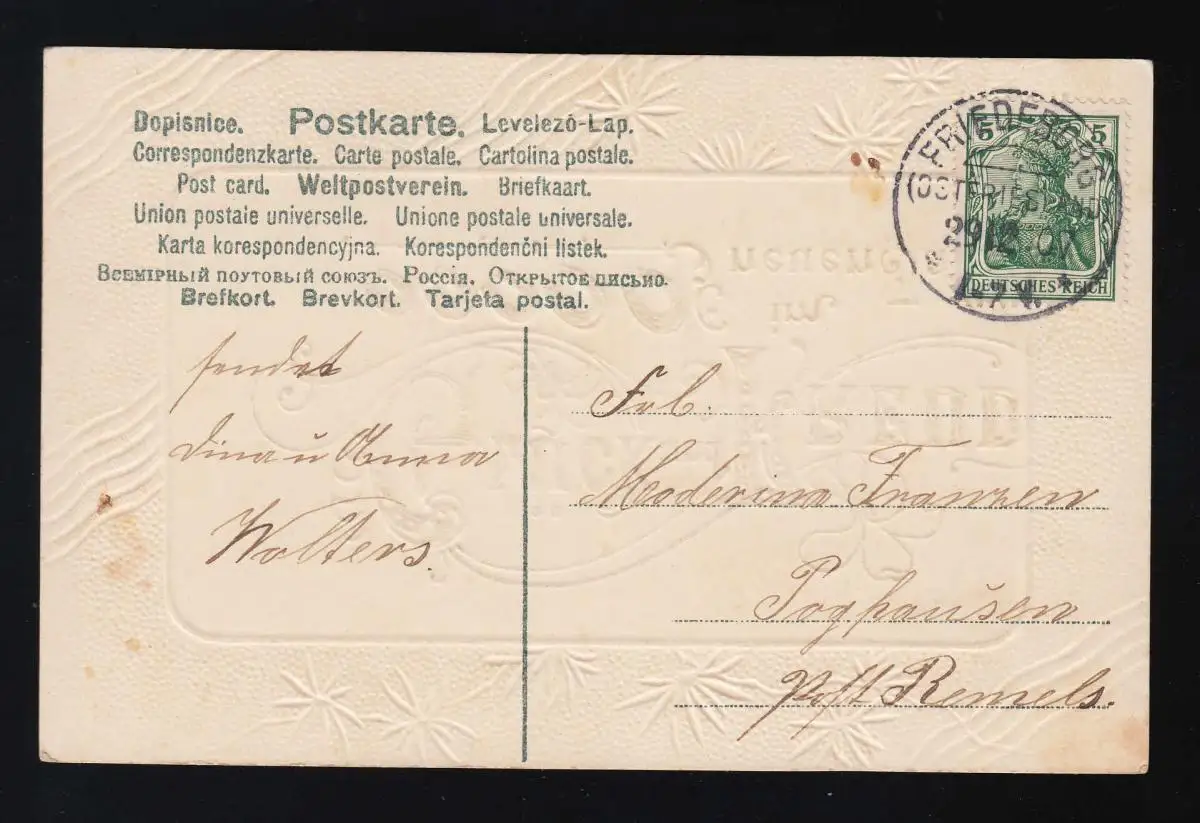 Dopisnice. Postkarte. Levelező-Lap.
Correspondenzkarte. Carte postale. Cartolina postale.
Post card. Weltpostverein. Briefkaart.
Union postale universelle. Unione postale universale.
Karta korespondencyjna. Korespondenční listek.
Всемірный поутовый союзъ. Россія. Открытое письмо.
Brefkort. Brevkort. Tarjeta postal.
5 5
DEUTSCHES REICH
FRIEDEBURG
(OSTFRIESLAND)
29.12.07
sendet
Dina u Anna
Wolters.
Frl.
Moderina Franzen
Poghausen
Post Remels.